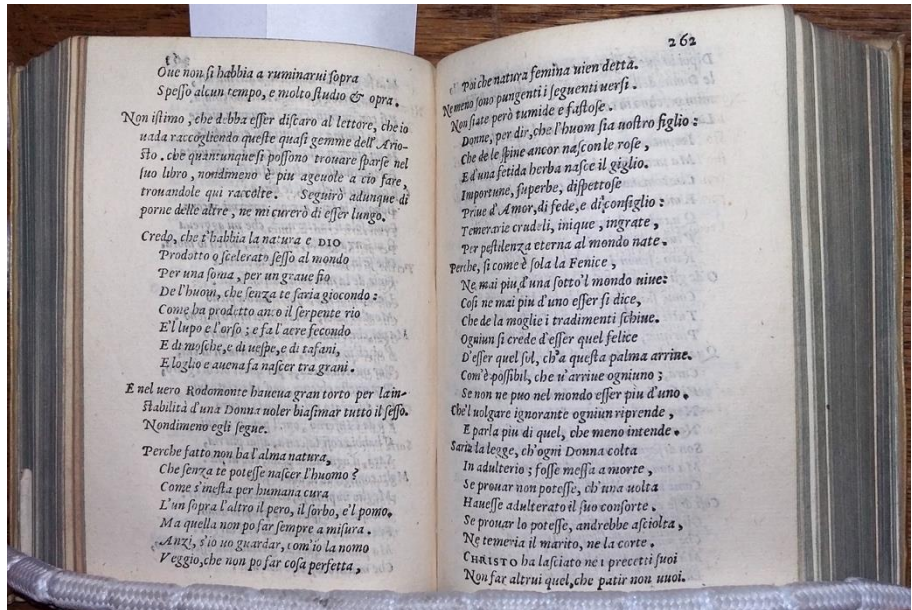 261
Oue non si habbia a ruminarui sopra
Spesso alcun tempo, e molto studio & opra.
Non istimo, che debba esser discaro al lettore, che io
uada raccogliendo queste quasi gemme dell'Ario-
sto. che quantunque si possono trouare sparse nel
suo libro, nondimeno è piu ageuole a cio fare,
trouandole qui raccolte. Seguirò adunque di
porne delle altre, ne mi curerò di esser lungo.
Credo, che t'habbia la natura e DIO
Prodotto o scelerato sesso al mondo
Per una soma, per un graue fio
De l'huom, che senza te saria giocondo:
Come ha prodotto anco il serpente rio
E'l lupo e l'orso; e fa l'aere fecondo
E di mosche, e di uespe, e di tafani,
E loglio e auena fa nascer tra grani.
E nel uero Rodomonte haueua gran torto per la in-
stabilità d'una Donna uoler biasimar tutto il sesso.
Nondimeno egli segue.
Perche fatto non ha l'alma natura,
Che senza te potesse nascer l'huomo?
Come s'inesta per humana cura
L'un sopra l'altro il pero, il sorbo, e'l pomo.
Ma quella non po far sempre a misura.
Anzi, s'io uo guardar, com'io la nomo
Veggio, che non po far cosa perfetta,
262
Poi che natura femina uien detta.
Ne meno sono pungenti i seguenti uersi.
Non siate però tumide e fastose.
Donne, per dir, che l'huom sia uostro figlio:
Che de le spine ancor nascon le rose,
E d'una fetida herba nasce il giglio.
Importune, superbe, dispettose
Priue d'Amor, di fede, e di consiglio:
Temerarie crudeli, inique, ingrate,
Per pestilenza eterna al mondo nate.
Perche, si come è sola la Fenice,
Ne mai piu d'una sotto'l mondo uiue:
Cosi ne mai piu d'uno esser si dice,
Che de la moglie i tradimenti schiue.
Ogniun si crede d'esser quel felice
D'esser quel sol, ch'a questa palma arriue.
Com'è possibil, che u'arriue ogniuno;
Se non ne puo nel mondo esser piu d'uno.
Che'l uolgare ignorante ogniun riprende,
E parla piu di quel, che meno intende.
Saria la legge, ch'ogni Donna colta
In adulterio; fosse messa a morte,
Se prouar non potesse, ch'una uolta
Hauesse adulterato il suo consorte.
Se prouar lo potesse, andrebbe asciolta,
Ne temeria il marito, ne la corte.
CHRISTO ha lasciato ne i precetti suoi
Non far altrui quel, che patir non uuoi.